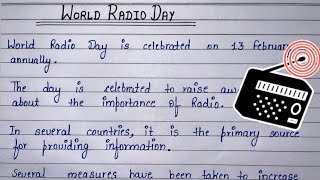 WORLD RADIO DAY
World Radio Day is celebrated on 13 February
annually.
The day is celebrated to raise
about the importance of Radio.
In several countries, it is the primary source
for providing information.
Several measures have been taken to increase